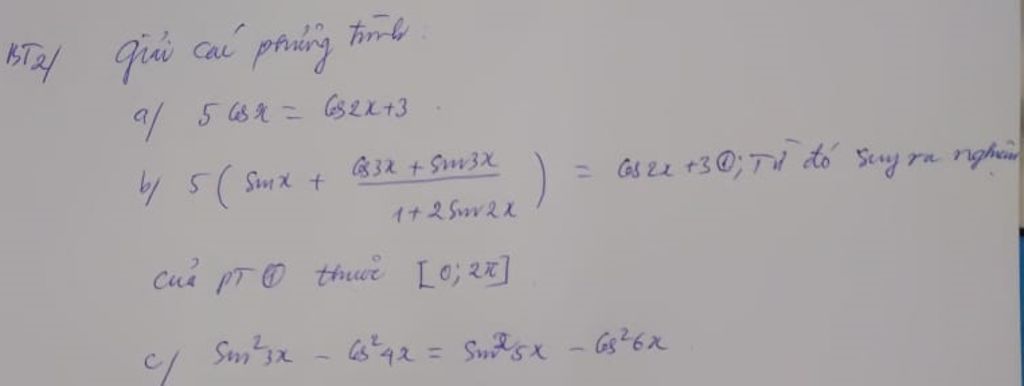 BT2/ Giải các phương trình.
a/ 5 cosx = cos2x+3.
b/ 5 ( sinx + (cos3x + sin3x)/(1+2sin2x) ) = cos2x +3 ①; Từ đó suy ra nghiệm
của PT ① thuộc [0; 2π]
c/ sin²3x - cos²4x = sin²5x - cos²6x